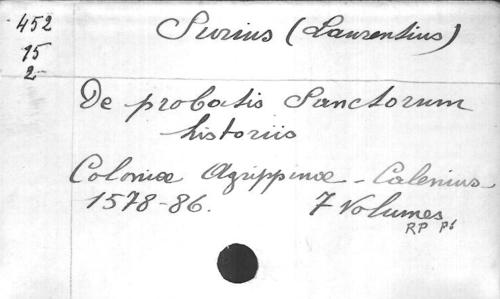 452
15
2
Surius (Laurentius)
De probatis Sanctorum
historiis
Coloniæ Agrippinæ - Calenius
1578-86. 7 Volumes
RP